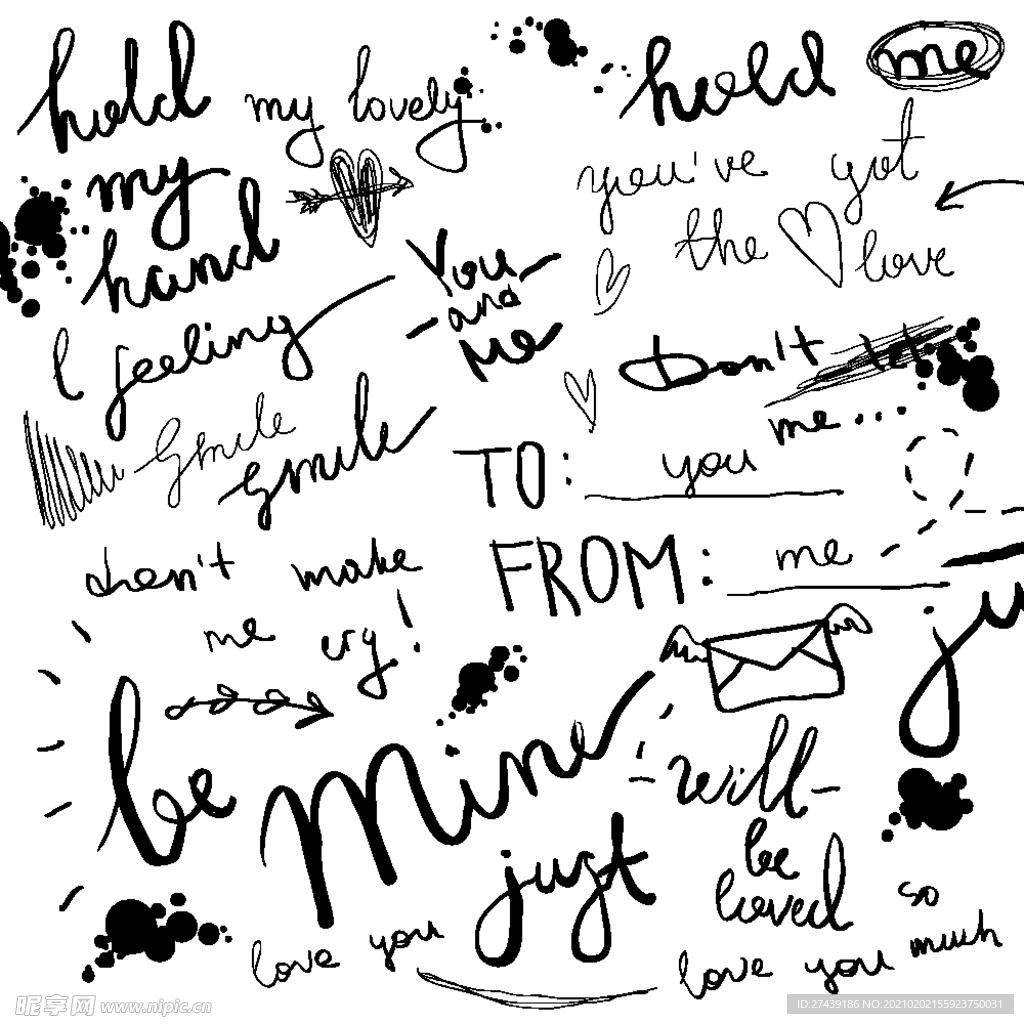 hold
my
hand
my lovely
hold me
you've got
the love
You
and
Me
I feeling
Don't
me...
Smile
Smile
TO: you
FROM: me
don't make
me cry!
be mine
ju
will-
be
loved
just
love you
so
love you much
昵享网 www.nipic.cn
ID:27439186 NO:20210202155923750031